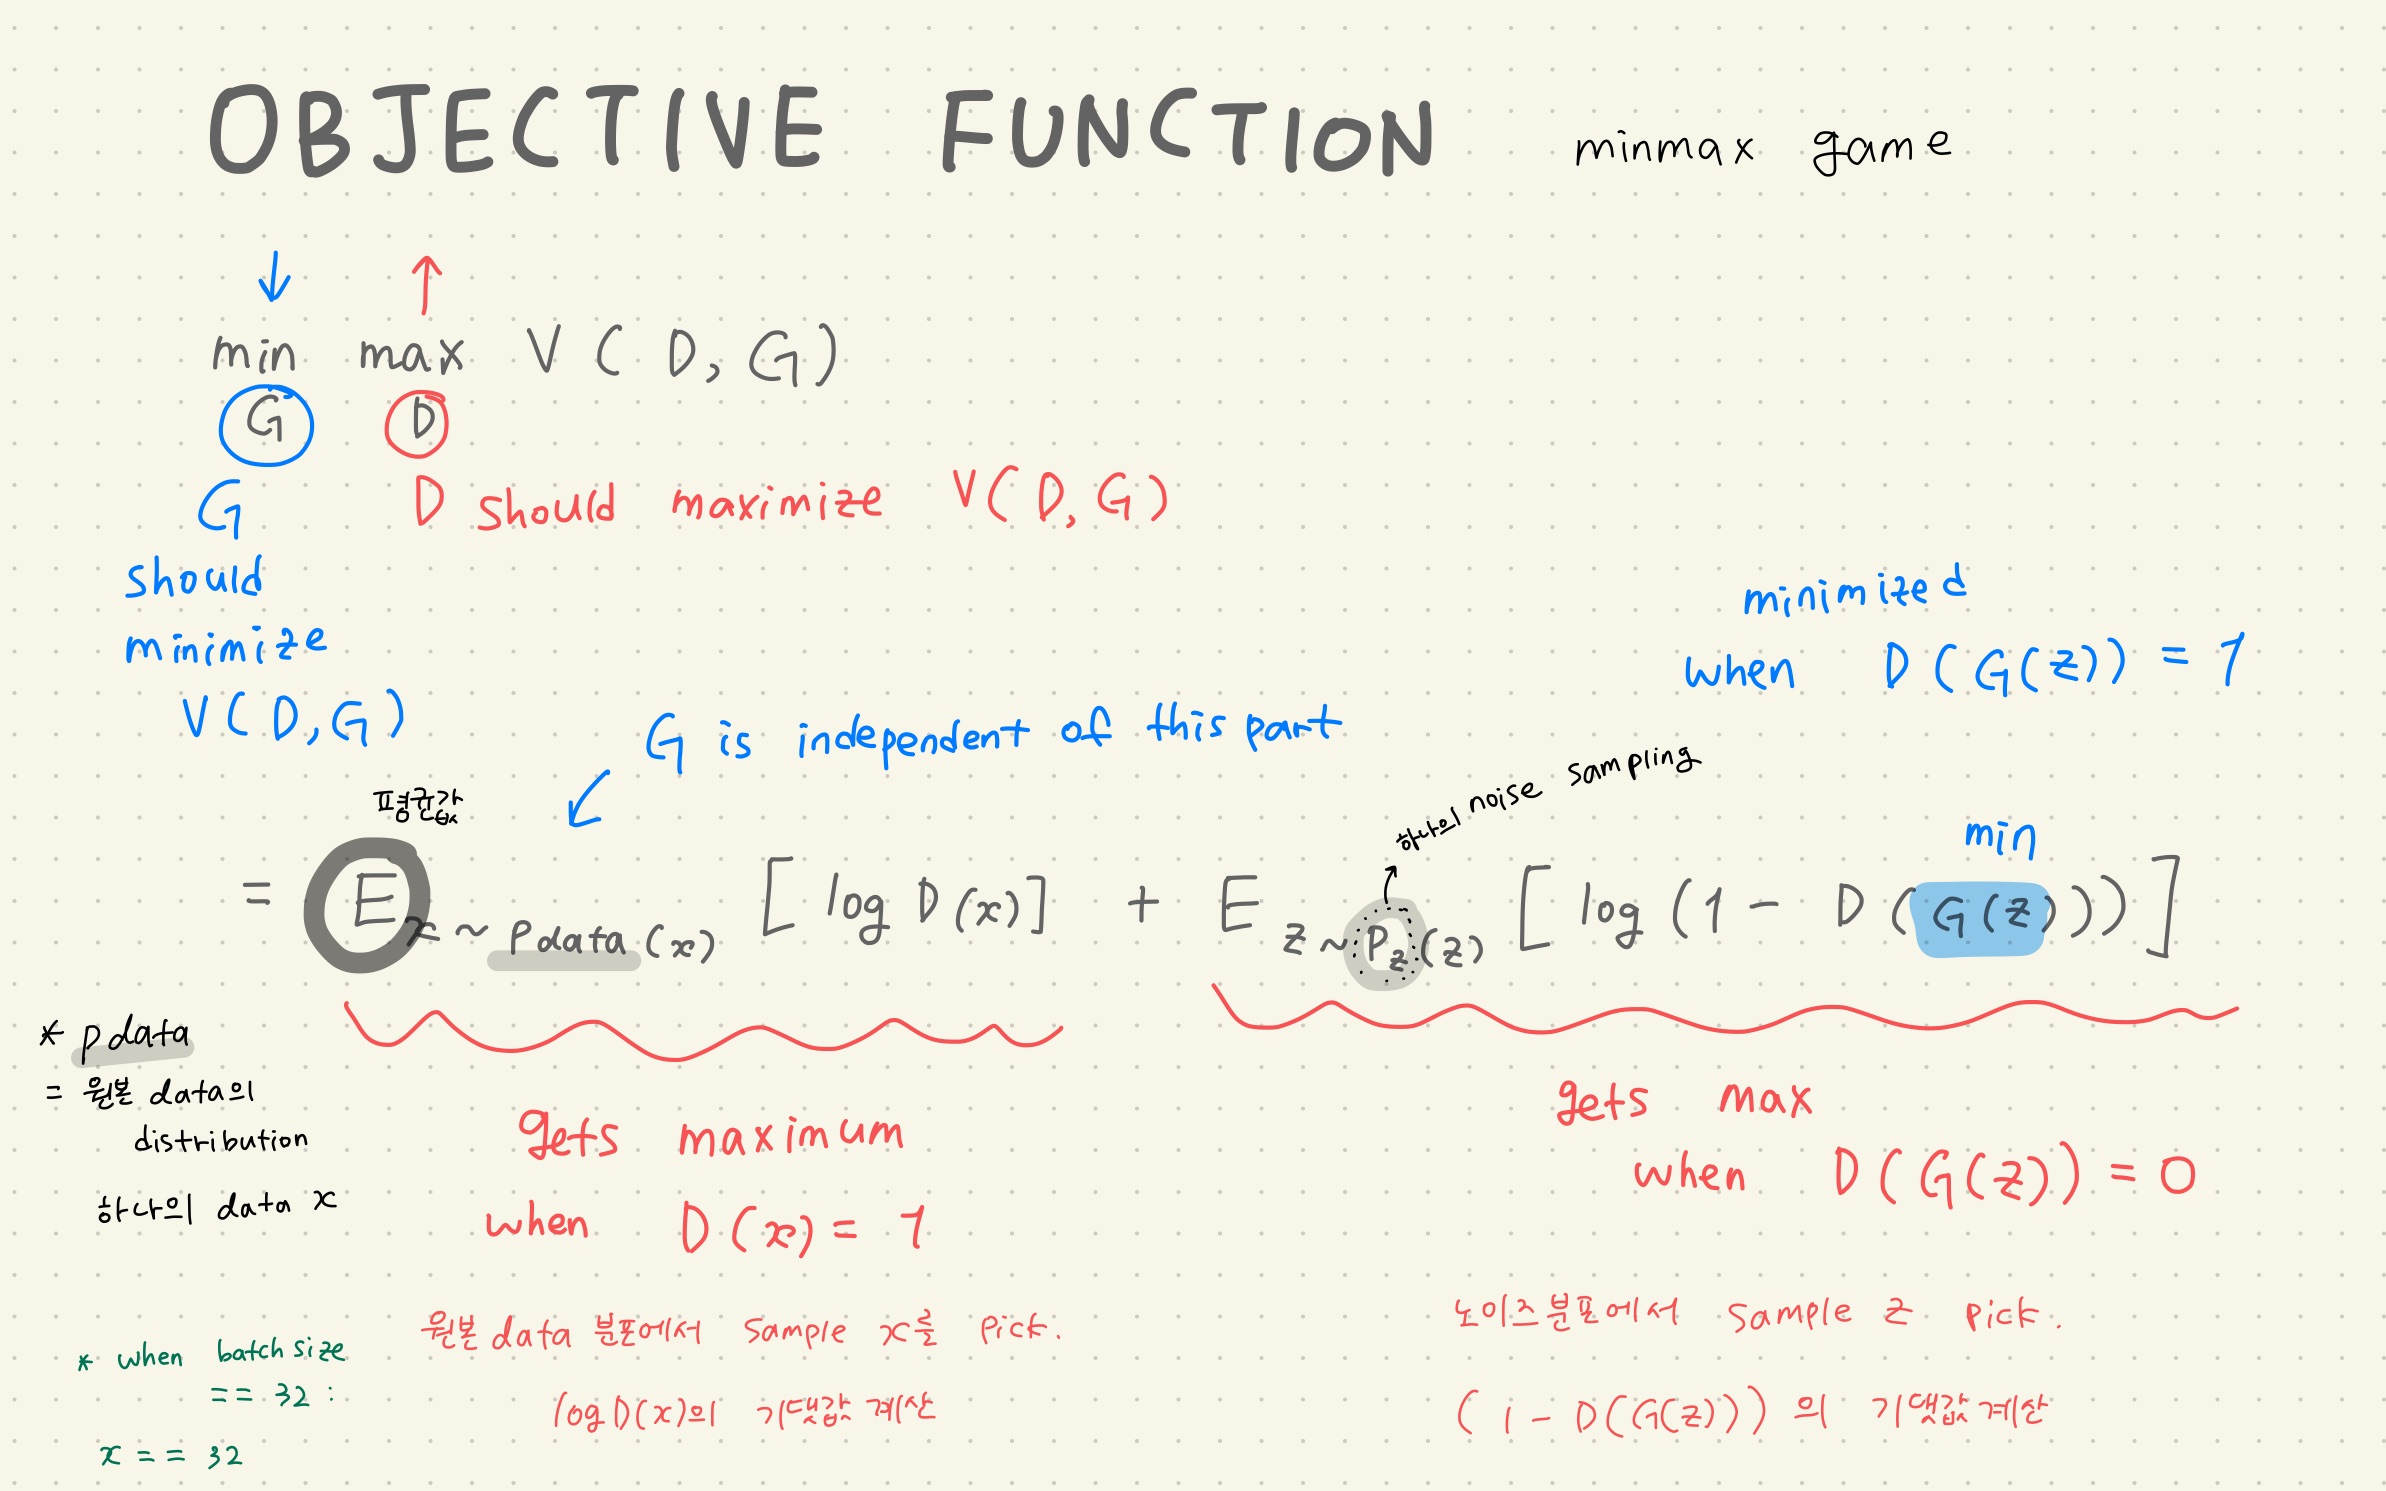 OBJECTIVE FUNCTION minmax game
↓ ↑
min max V ( D, G )
G D
G
should
minimize
V( D, G )
D should maximize V( D, G )
minimized
when D ( G(z)) = 1
G is independent of this part
평균값
하나의 noise sampling
min
= E x ~ Pdata (x) [ log D(x) ] + E z ~ Pz (z) [ log (1 - D ( G(z))) ]
* pdata
= 원본 data의
distribution
하나의 data x
gets maximum
when D (x) = 1
gets max
when D ( G(z)) = 0
원본 data 분포에서 sample x를 pick.
log D(x)의 기댓값 계산
노이즈분포에서 sample z pick.
( 1 - D((G(z))) 의 기댓값 계산
* when batch size
== 32 :
x == 32